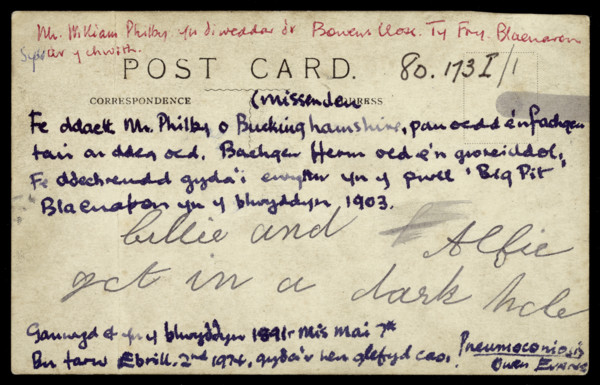 Mr. William Philby yn diweddar o'r Bowens Close. Ty Fry. Blaenavon
ar y chwith.
POST CARD. 80.173I/1
CORRESPONDENCE ADDRESS
(Missenden
Fe ddaeth Mr. Philby o Buckinghamshire, pan oedd e'n fachgen
tair ar ddeg oed. Bachgen fferm oedd e'n gwreiddol,
Fe ddechreuodd gyda'i ewythr yn y pwll 'Big Pit'
Blaenafon yn y blwyddyn 1903.
billie and Alfie
get in a dark hole
Ganwyd ef yn y blwyddyn 1891 - Mis Mai 7th
Bu farw Ebrill. 2nd 1974, gyda'r hen glefyd cas. Pneumoconiosis
Owen Evans